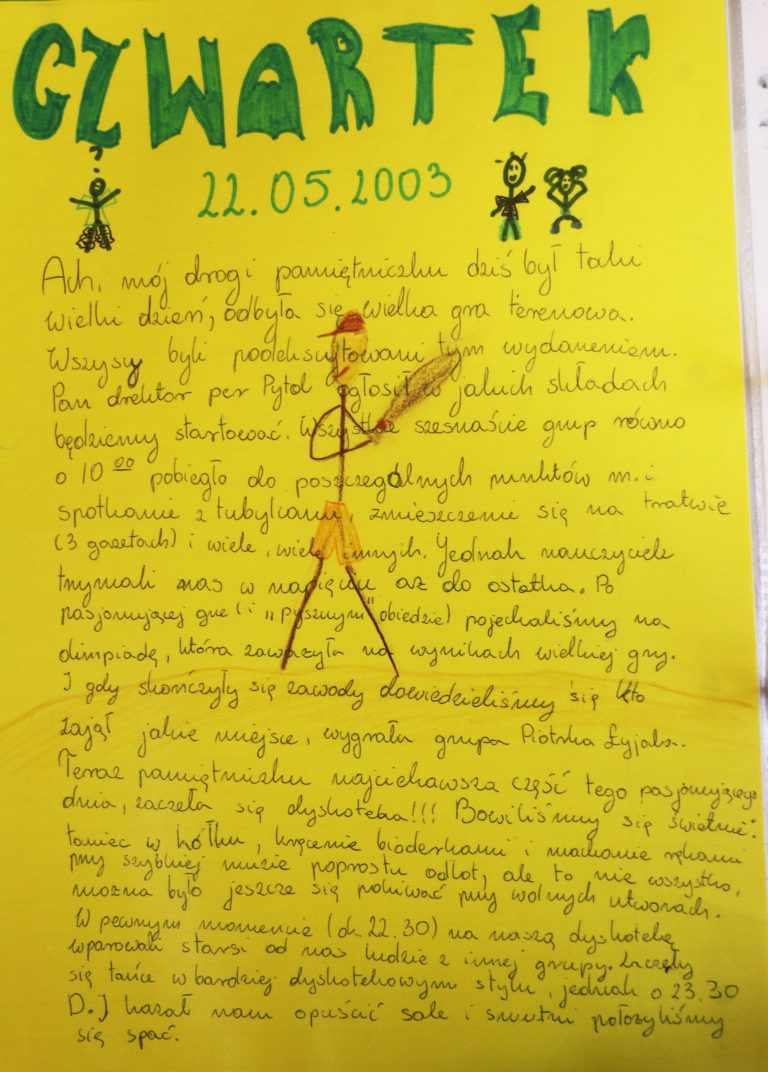 CZWARTEK
?
22.05.2003
Ach, mój drogi pamiętniczku dziś był taki
wielki dzień, odbyła się wielka gra terenowa.
Wszyscy byli podekscytowani tym wydarzeniem.
Pan drektor per Pytol ogłosił w jakich składach
będziemy startować. Wszystkie szesnaście grup równo
o 10 00 pobiegło do poszczególnych punktów m.i
spotkanie z tubylcami, zmieszczenie się na tratwie
(3 gazetach) i wiele, wiele innych. Jednak nauczyciele
trzymali nas w napięciu aż do ostatka. Po
pasjonującej grze (i "pysznym" obiedzie) pojechaliśmy na
olimpiadę, która zaważyła na wynikach wielkiej gry.
I gdy skończyły się zawody dowiedzieliśmy się kto
zajął jakie miejsce, wygrała grupa Piotrka Łyjaka.
Teraz pamiętniczku najciekawsza część tego pasjonującego
dnia, zaczeła się dyskoteka!!! Bawiliśmy się świetnie:
taniec w kółku, kręcenie bioderkami i machanie rękami
przy szybkiej muzie poprostu odlot, ale to nie wszystko,
można było jeszcze się pokiwać przy wolnych utworach.
W pewnym momencie (ok. 22.30) na naszą dyskotekę
wparowali starsi od nas ludzie z innej grupy. Zaczęły
się tańce w bardziej dyskotekowym stylu, jednak o 23.30
D.J kazał nam opuścić sale i smutni położyliśmy
się spać.